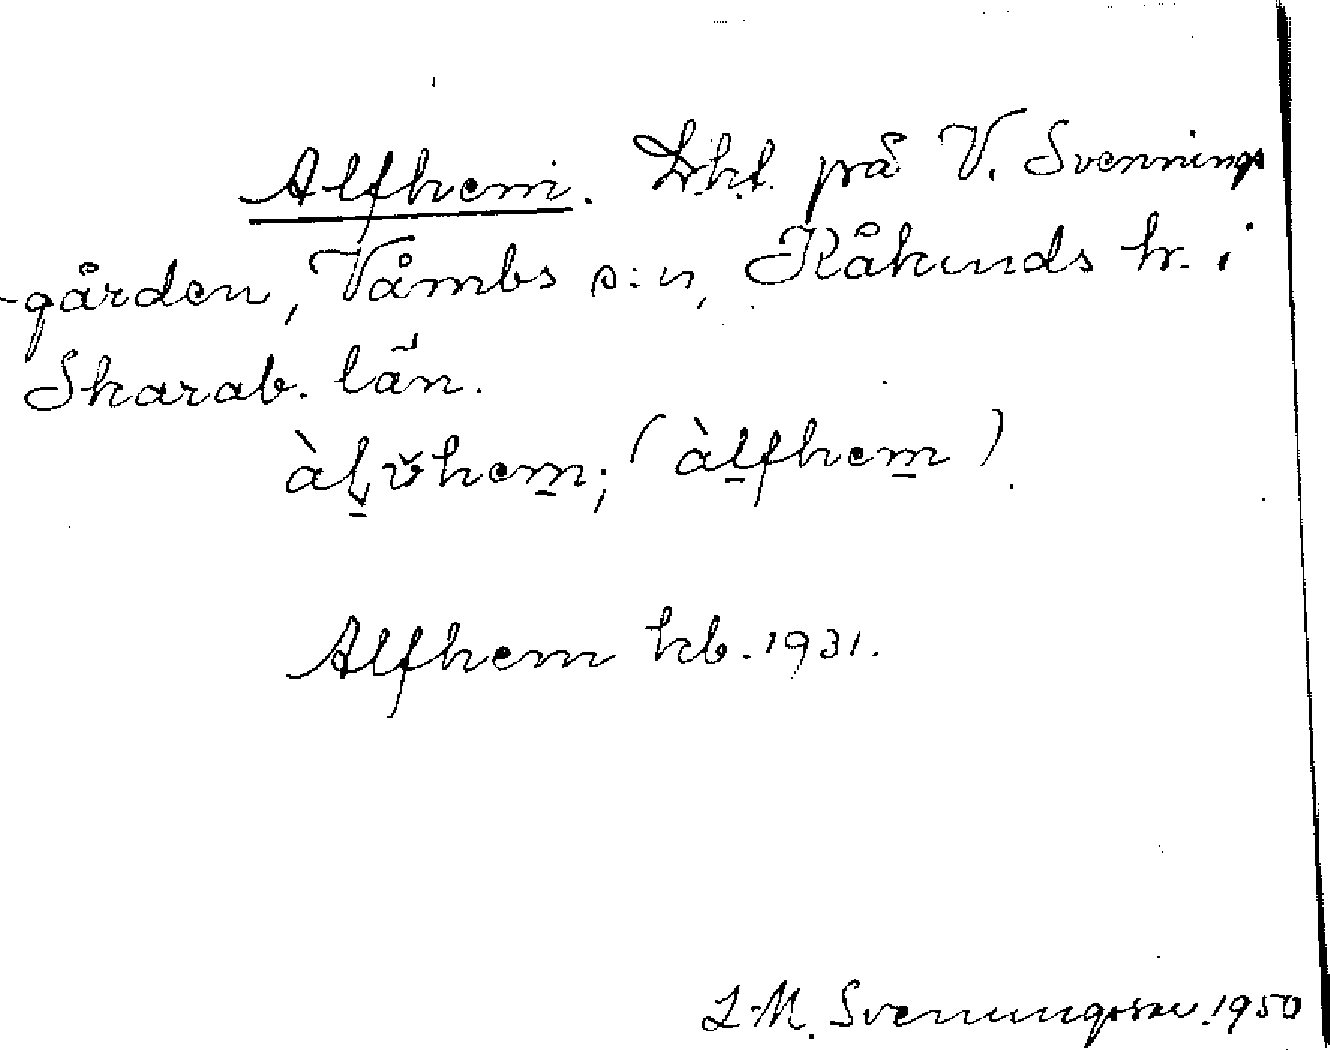 Alfhem. Lht. på V. Svennings
-gården, Våmbs s:n, Kåkinds hr. i
Skarab. län.
àḷv̆hem̲; (àl̲fhem̲)
Alfhem kb. 1931.
L-M. Svenungsson. 1950